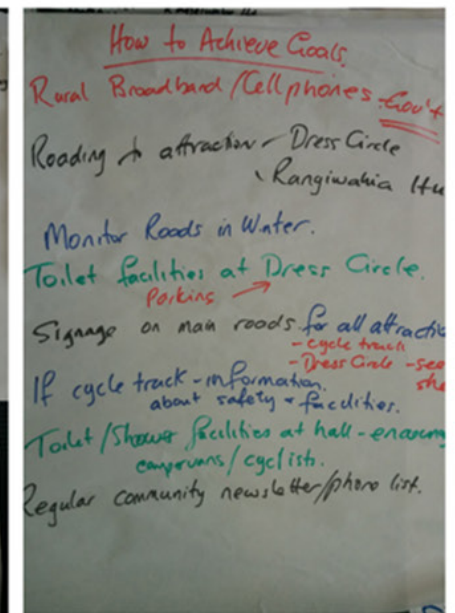 How to Achieve Goals.
Rural Broadband/Cellphones - Gov't
Roading to attraction - Dress Circle
Rangiwahia
Monitor Roads in Winter.
Toilet facilities at Dress Circle.
Parking
Signage on main roads for all attractio
- cycle track
- Dress Circle - see
she
If cycle track - information.
about safety & facilities.
Toilet/Shower facilities at hall -
campervans/cyclists.
Regular community newsletter/phone list.